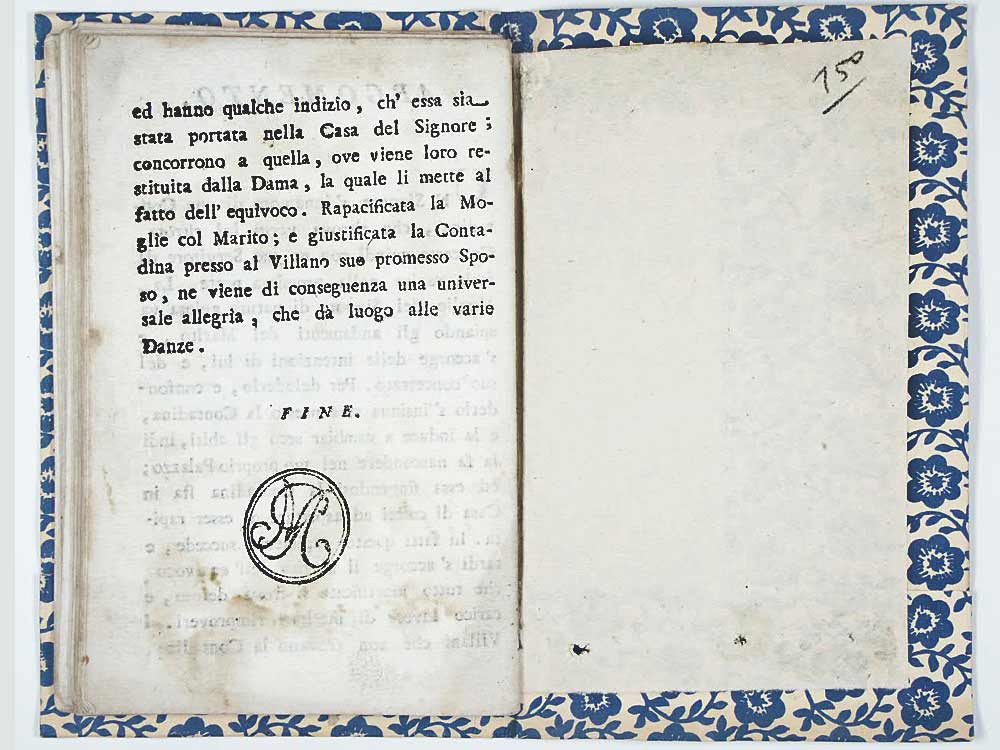 ed hanno qualche indizio, ch' essa sia
stata portata nella Casa del Signore;
concorrono a quella, ove viene loro re-
stituita dalla Dama, la quale li mette al
fatto dell' equivoco. Rapacificata la Mo-
glie col Marito; e giustificata la Conta-
dina presso al Villano suo promesso Spo-
so, ne viene di conseguenza una univer-
sale allegria, che dà luogo alle varie
Danze.
FINE.
150